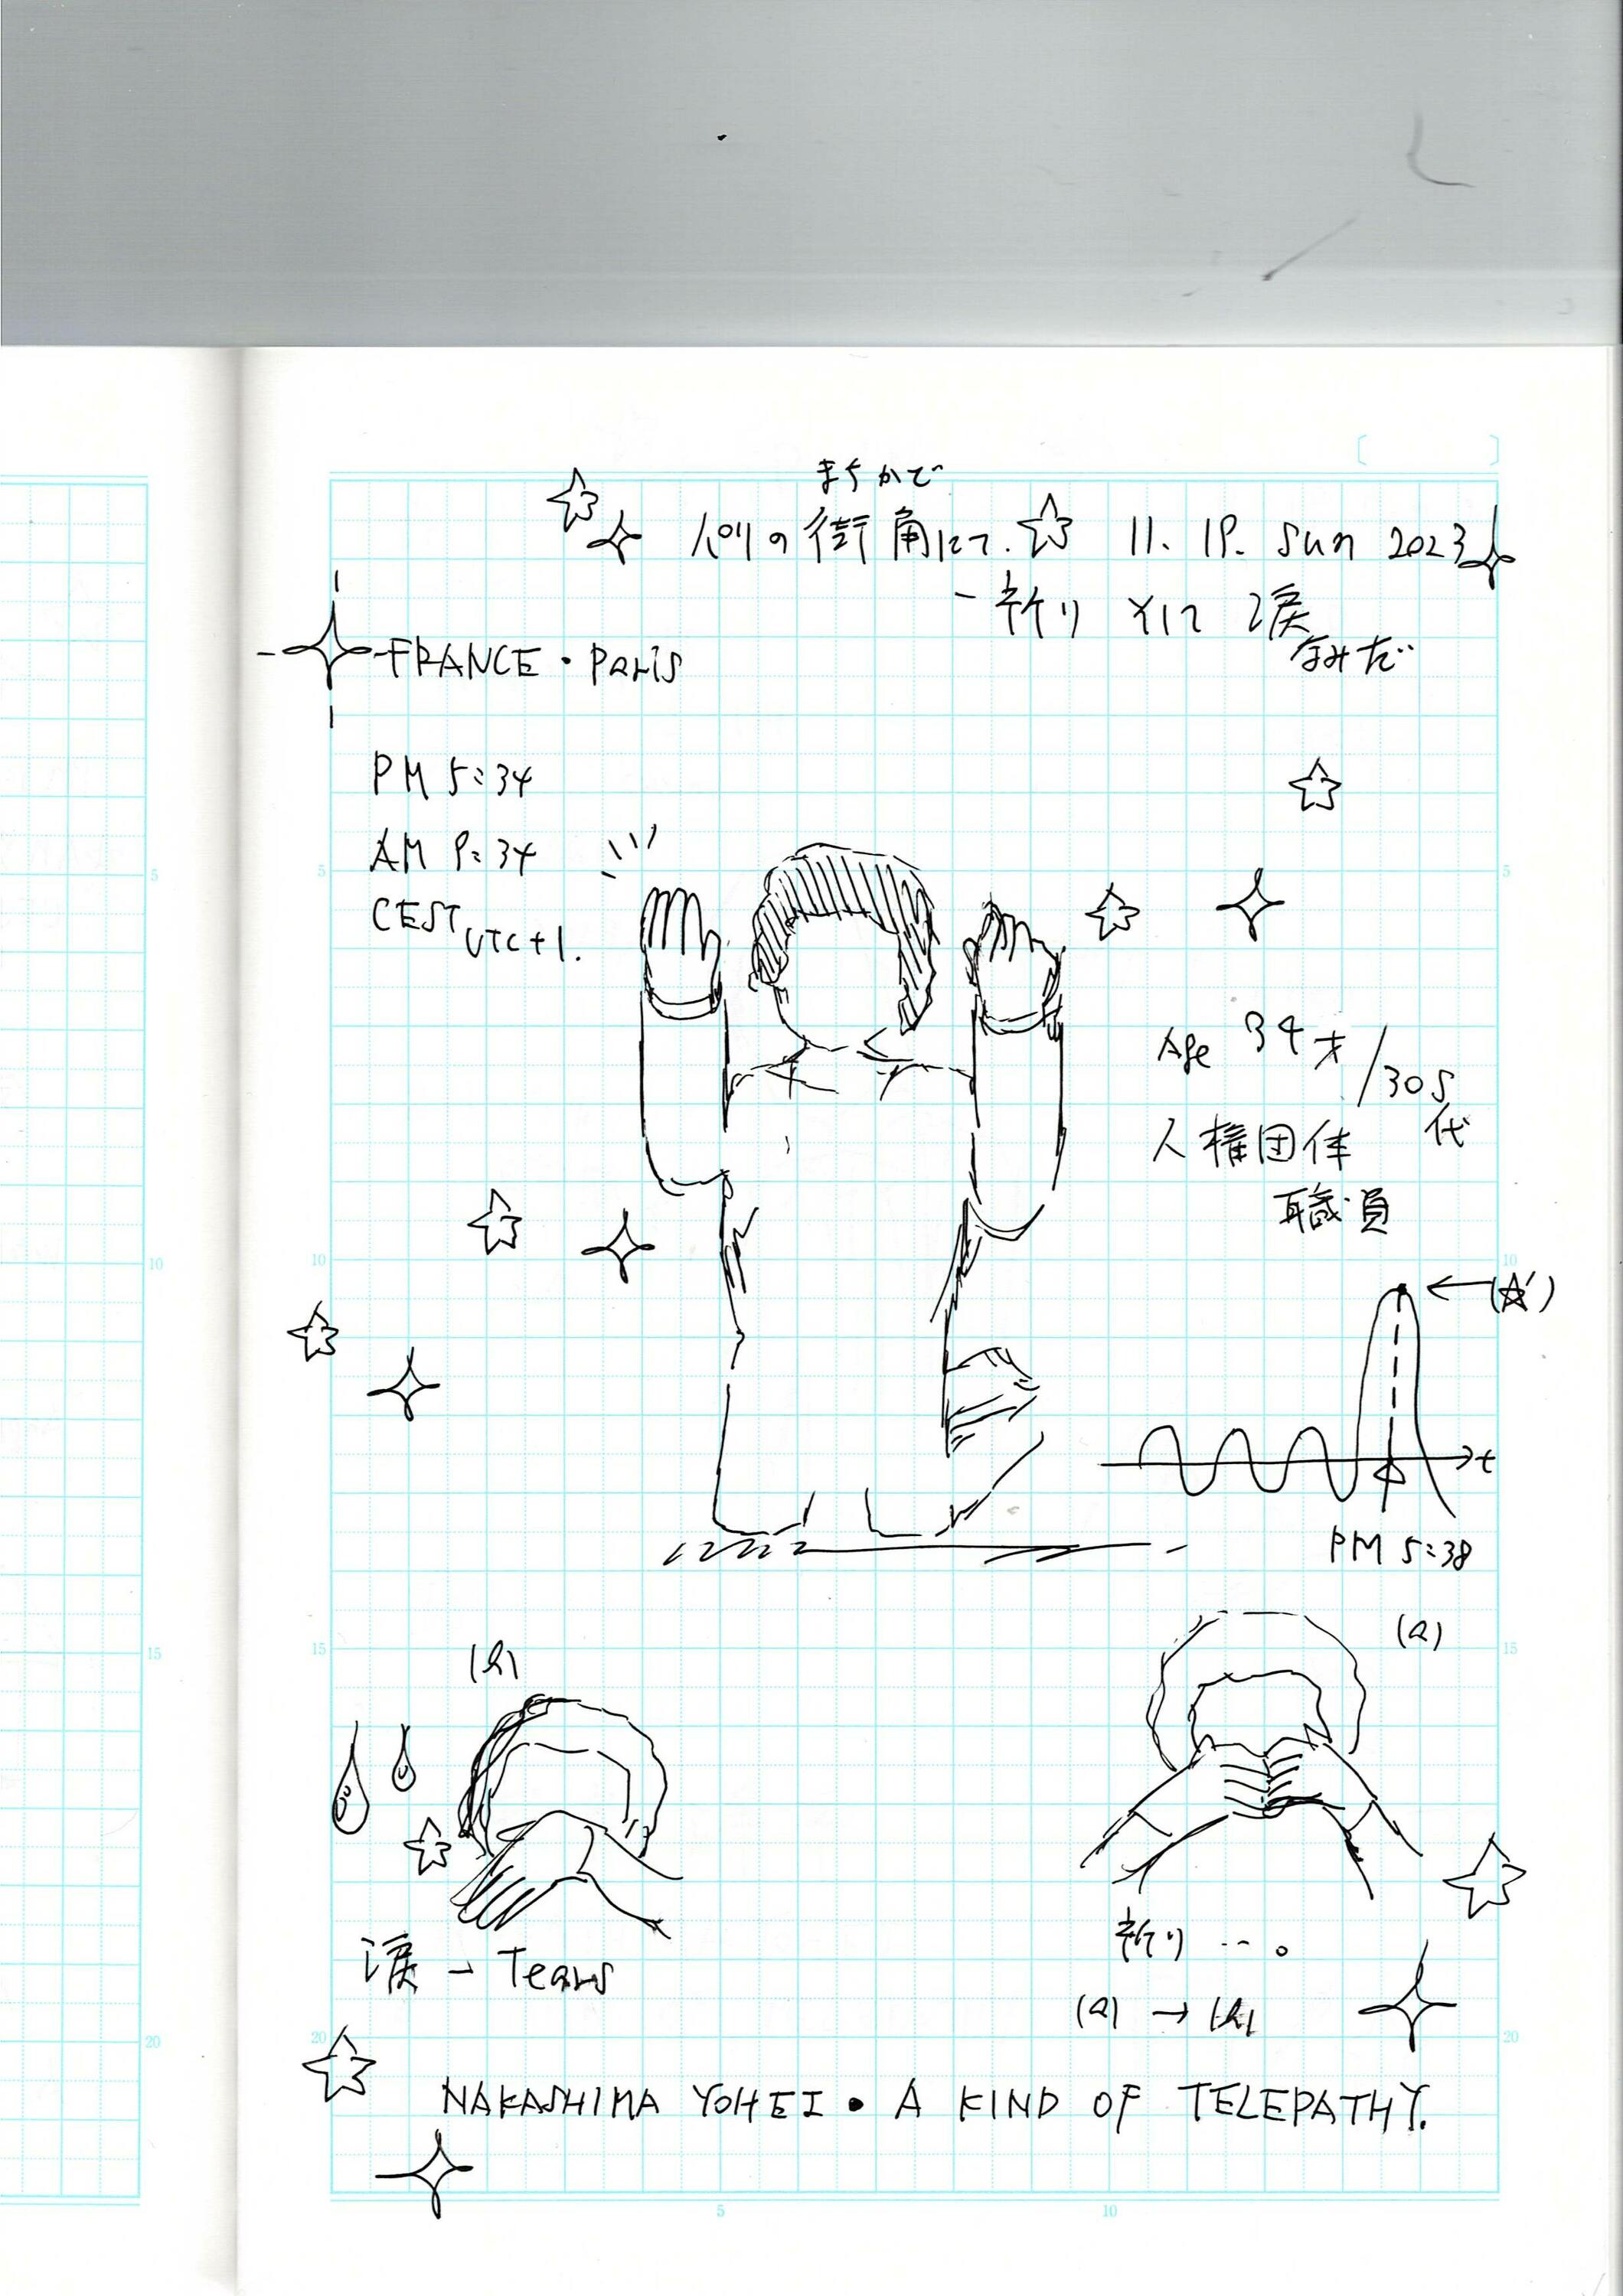 まちかど
パリの街角にて. 11. 19. Sun 2023
- 祈り そして 涙
なみだ
FRANCE・Paris
PM 5:34
AM 9:34
CEST UTC+1.
Age 34才/30s
代
人権団体
職員
(☆')
t
PM 5:38
(a)
(b)
涙 - Tears
祈り …。
(a) → (b)
NAKASHIMA YOHEI・A KIND OF TELEPATHY.
5
10
15
20
5
10
15
20
5
10
15
20
5
10